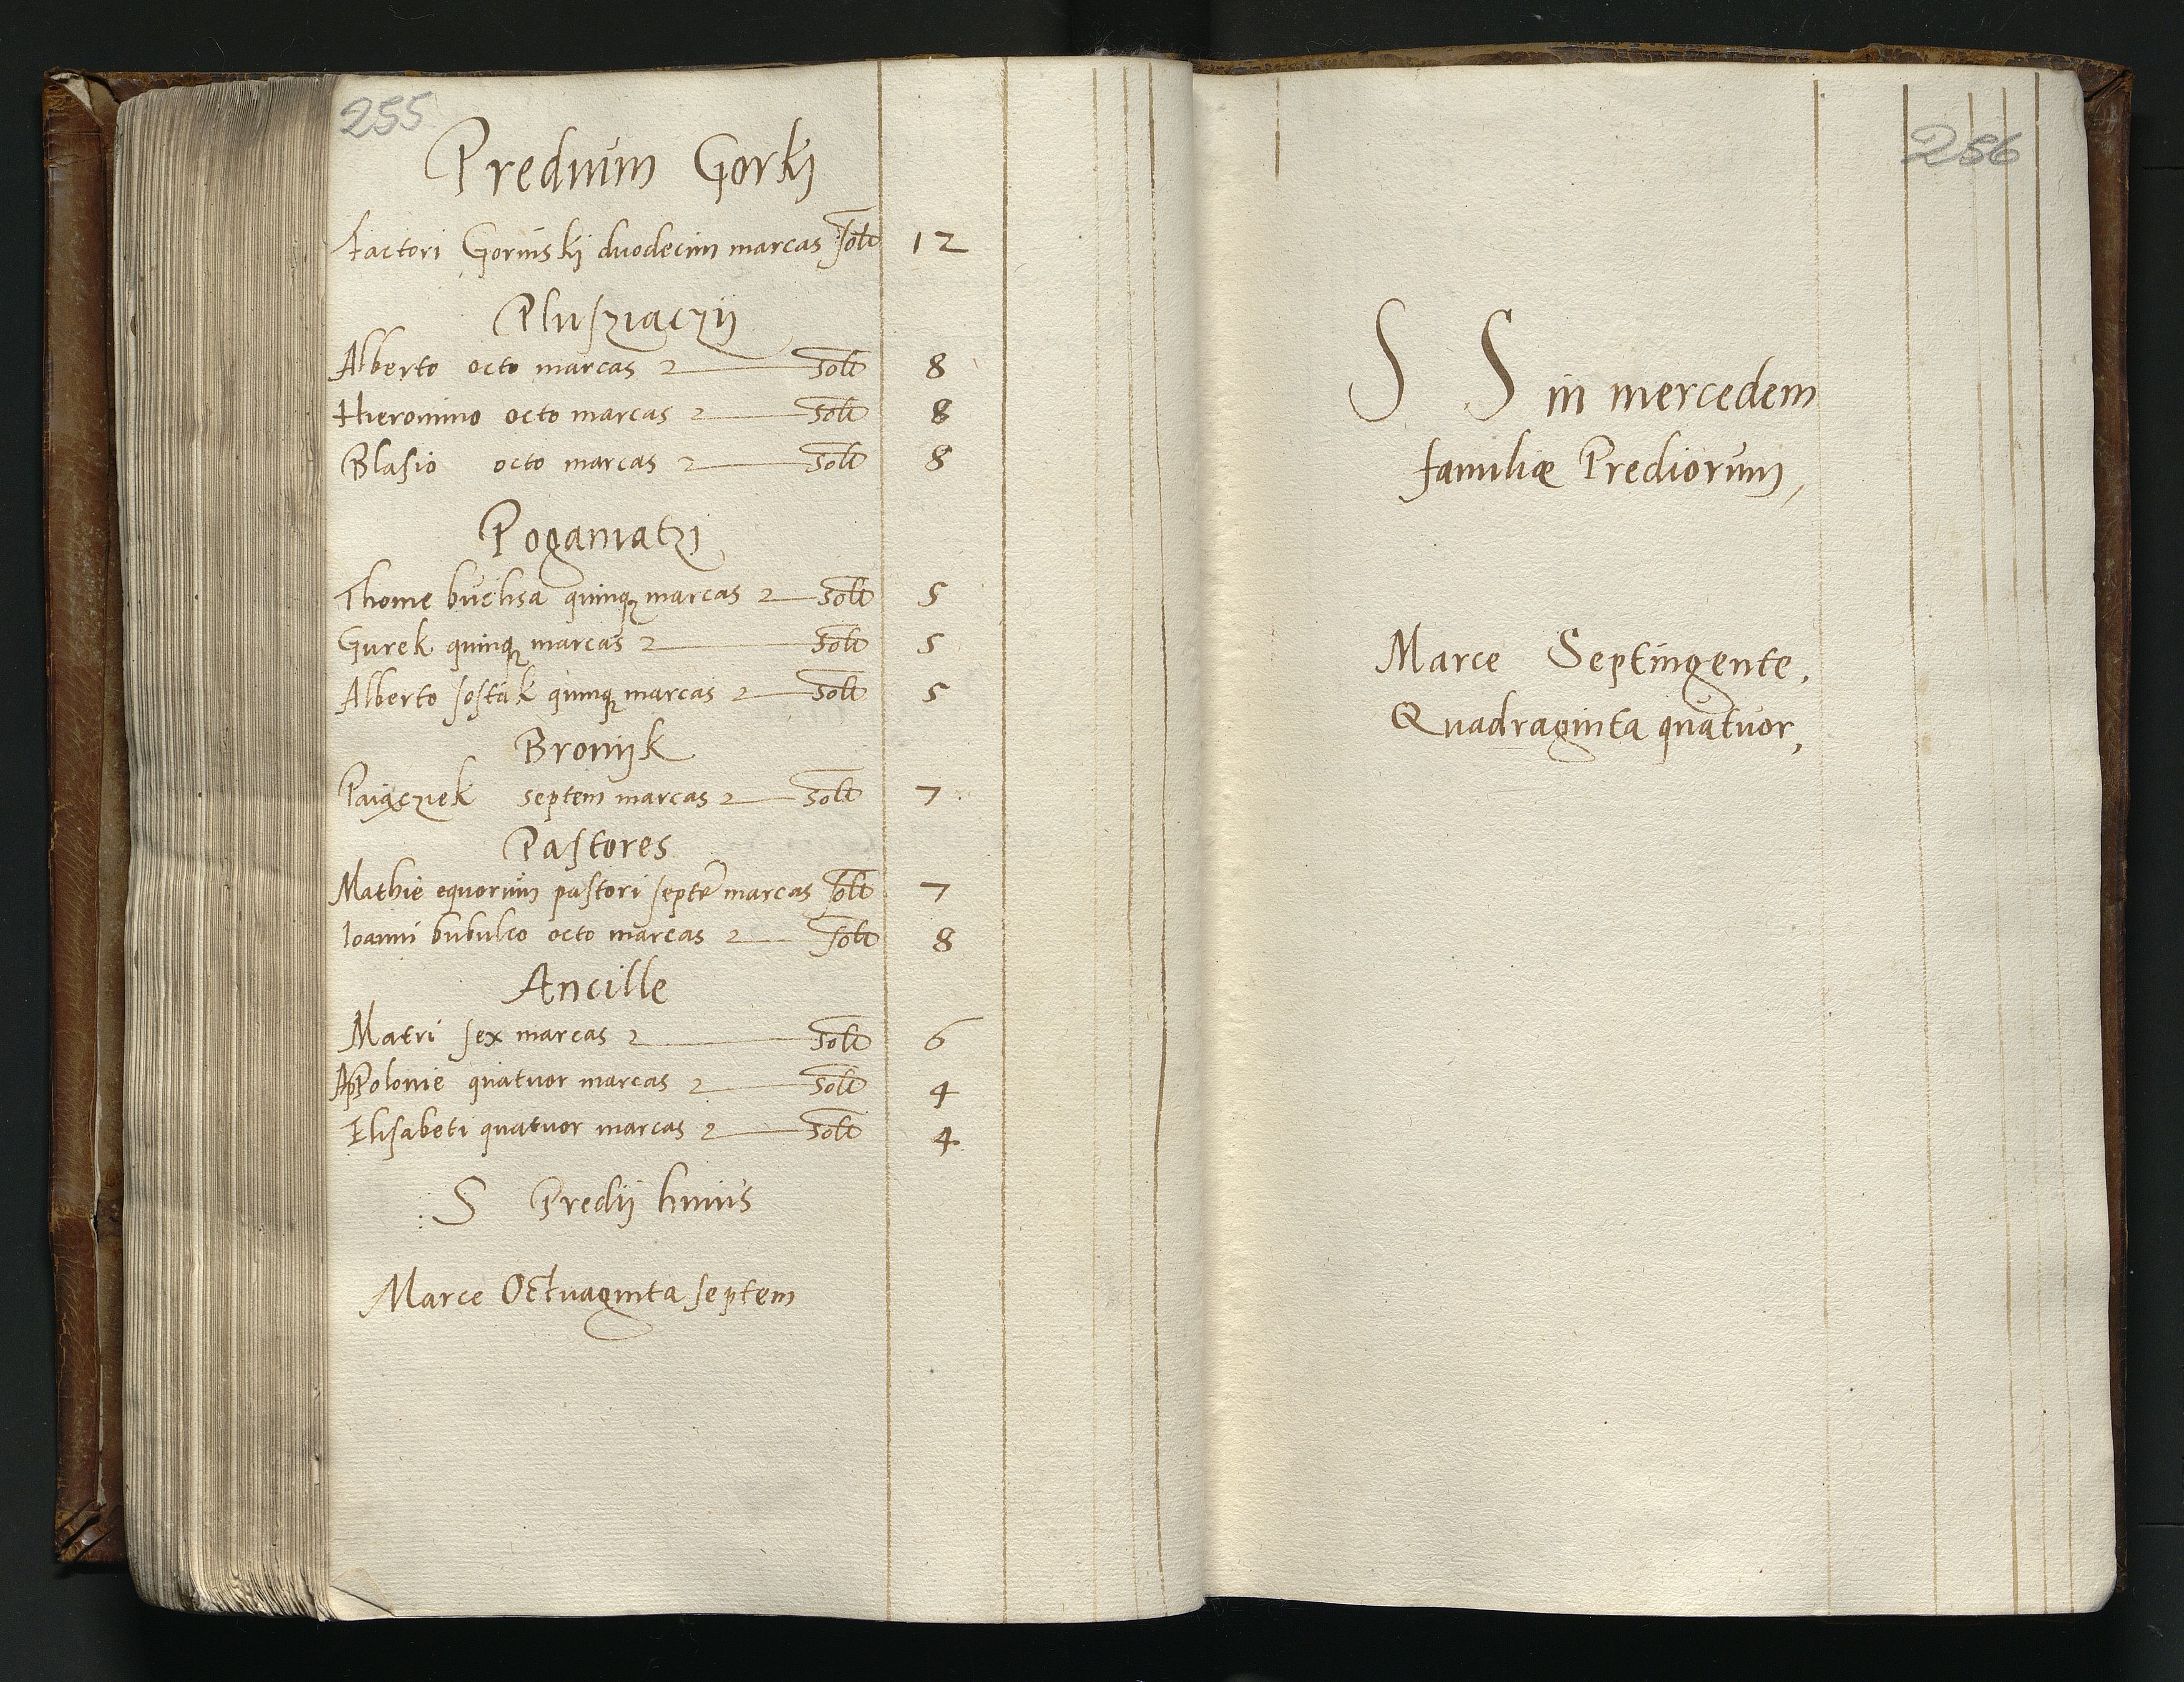 255
Predium Gorki
Factori Gorinski duodecim marcas solt 12
Plusziaczij
Alberto octo marcas 2 solt 8
Hieronimo octo marcas 2 solt 8
Blasio octo marcas 2 solt 8
Poganiatzi
Thome buchsa quinq marcas 2 solt 5
Gurek quinq marcas 2 solt 5
Alberto sostak quinq marcas 2 solt 5
Bronijk
Paiączek septem marcas 2 solt 7
Pastores
Mathie equorum pastori septē marcas solt 7
Ioanni bubulco octo marcas 2 solt 8
Ancille
Matri sex marcas 2 solt 6
Appolonie quatuor marcas 2 solt 4
Elisabeti quatuor marcas 2 solt 4
S Predij huius
Marce Octuaginta septem
256
S S in mercedem
familiæ Prediorum,
Marce Septingente,
Quadraginta quatuor,